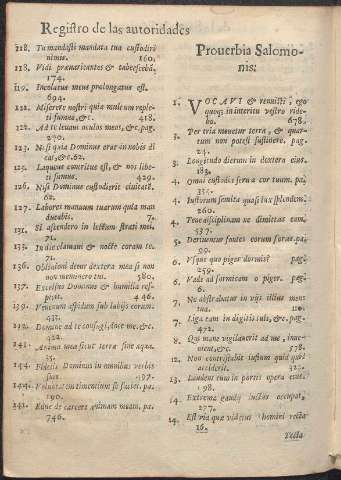 Registro de las autoridades
118. Tu mandasti mandata tua custodiri
nimis. 160.
118. Vidi prævaricantes & tabescebã.
174.
119. Incolatus meus prolongatus est.
694.
122. Miserere nostri quia multum reple-
ti sumus, &c. 418.
122. Ad te leuaui oculos meos, &c. pag.
270.
123. Nisi quia Dominus erat in nobis di
cat, &c. 62.
123. Laqueus contritus est, & nos libe-
ti sumus. 429.
126. Nisi Dominus custodierit ciuitatē.
62.
127. Labores manuum tuarum quia man
ducabis. 7.
131. Si ascendero in lectum strati mei.
71.
133. In die clamaui & nocte coram te.
71.
136. Obliuioni detur dextera mea si non
non meminero tui. 580.
137. Excelsus Dominus & humilia res-
picit. 446.
139. Venenum aspidum sub labijs eorum.
431.
142. Domine ad te confugi, doce me, &c.
422.
142. Anima mea sicut terra sine aqua.
35.
144. Fidelis Dominus in omnibus verbis
suis. 197.
144. Voluntatem timentium se faciet. pa.
190.
141. Educ de carcere animam meam, pa.
746.
Prouerbia Salomo-
nis.
1. VOCAVI & renuistis, ego
quoq; in interitu vestro ride-
bo. 678.
3. Per tria mouetur terra, & quar-
tum non potest sustinere. pag.
24.
3. Longitudo dierum in dextera eius.
183.
4. Omni custodia serua cor tuum. pa.
335.
4. Iustorum semita quasi lux splendens.
260.
4. Tene disciplinam ne dimittas eam.
537.
5. Deriuentur fontes eorum foras. pa.
99.
6. Vsque quo piger dormis? pag.
259.
6. Vade ad formicam o piger. pag.
6.
7. Ne abstrabatur in vijs illius mens
tua. 120.
7. Liga eam in digitis tuis, &c. pag.
472.
8. Qui mane vigilauerit ad me, inue-
niet, &c. 578.
12. Non contristabit iustum quid quid
acciderit. 322.
13. Laudent eum in portis opera eius.
198.
14. Extrema gaudij luctus occupat,
277.
14. Est via quæ videtur homini recta
16.
Recta